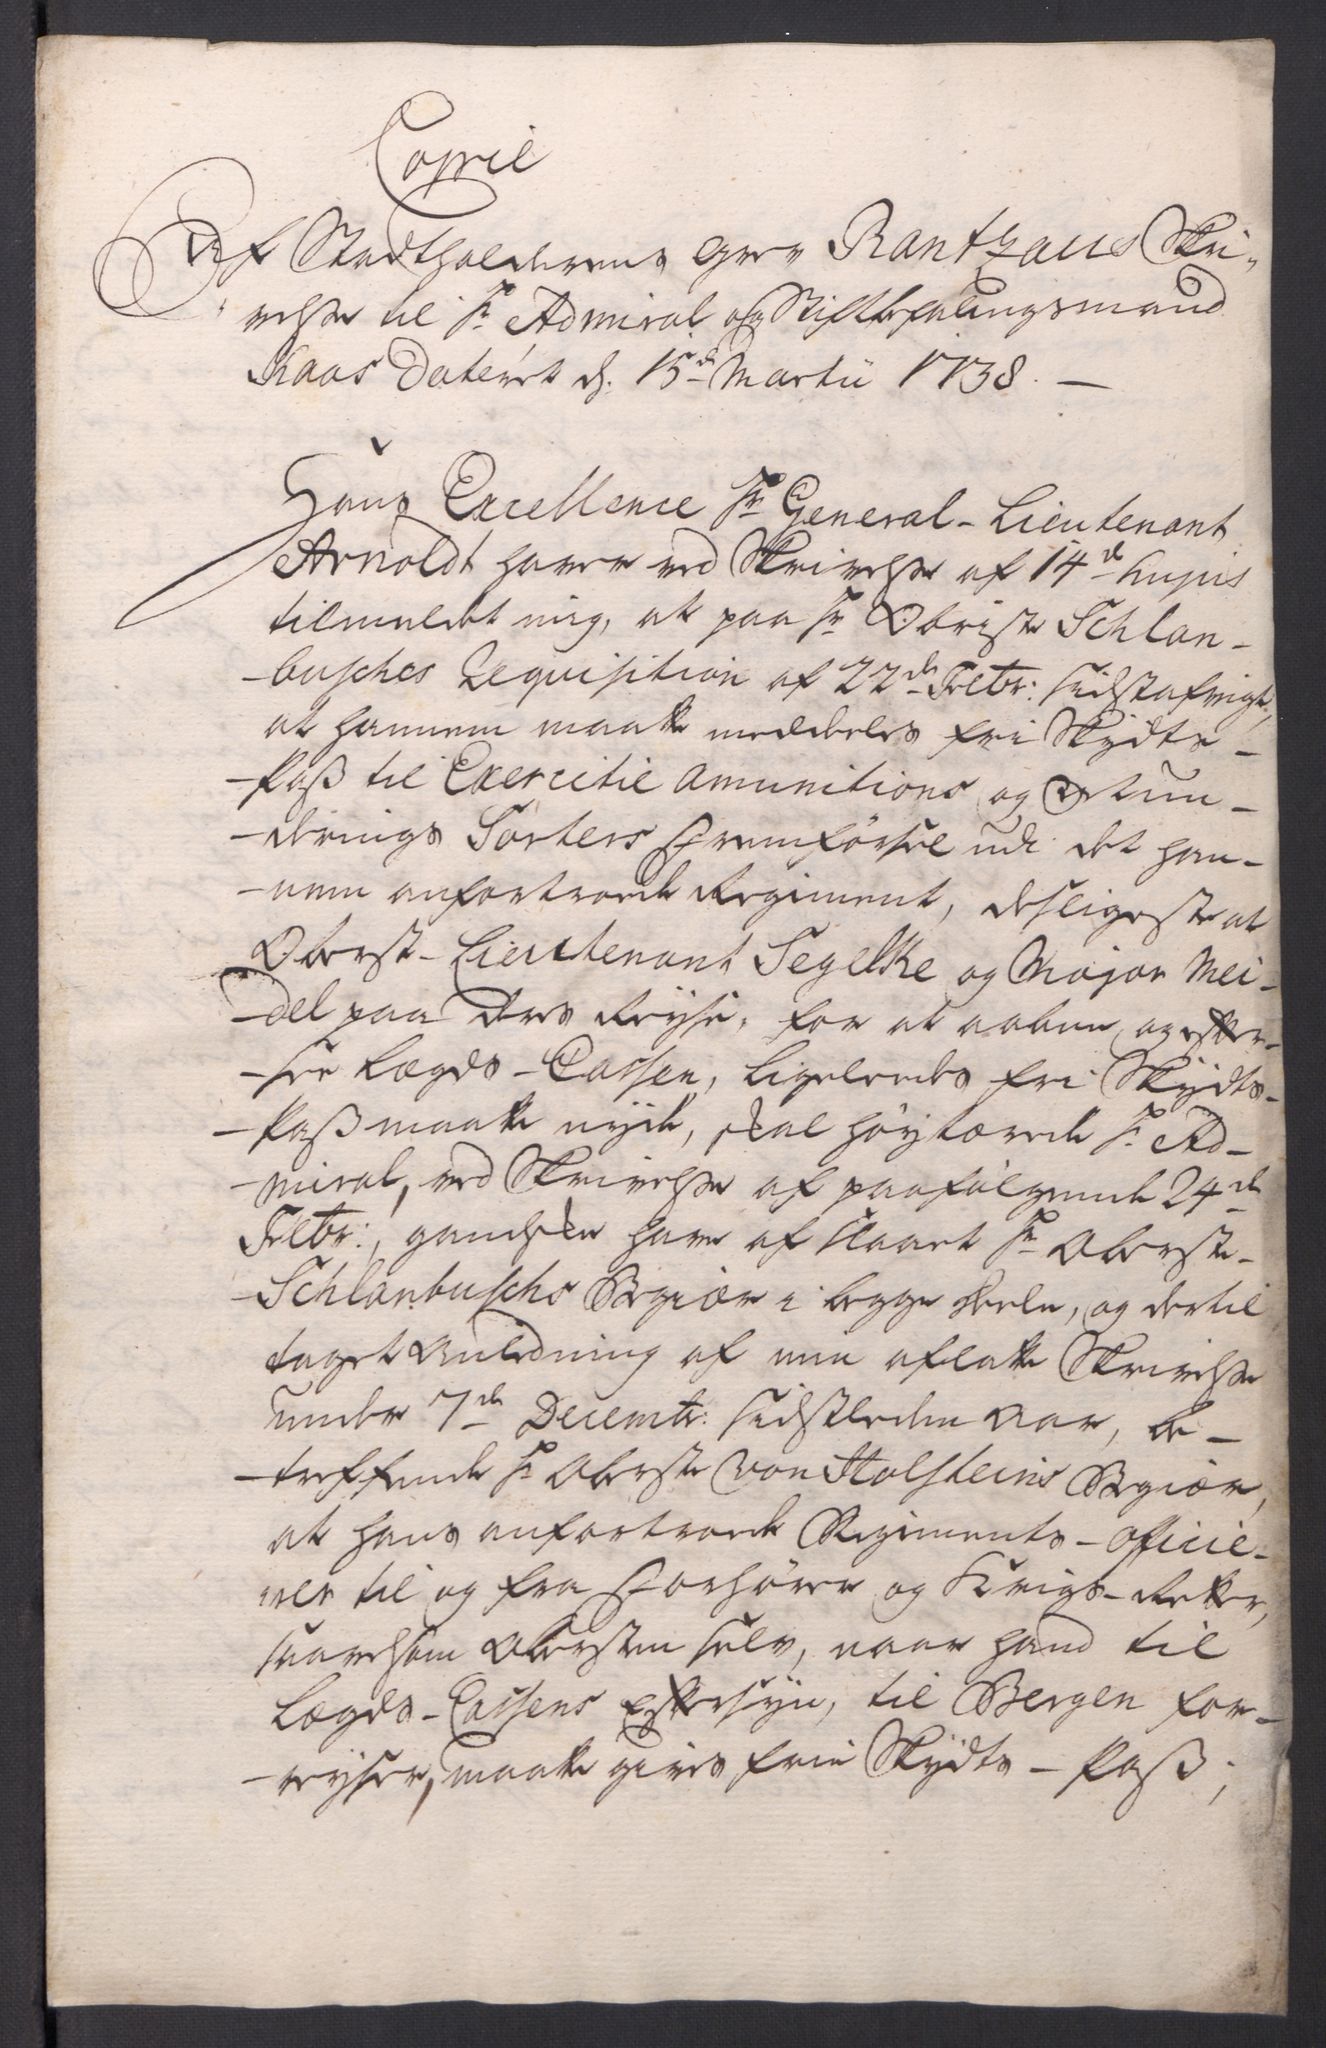 Copie
Af Stadtholderens Grev Rantzaus Skri-
velse til Hr Admiral og Stiftbefalingsmand
Kaas Dateret d. 15de Martii 1738. —
Hans Excellence Hr General-Lieutenant
Arnoldt haver ved Skrivelse af 14de hujus
tilmeldet mig, at paa Hr Obriste Schlan-
-busches Requisition af 22de Febr: sidstafvigt,
at hannem maatte meddeeles fri Skydts-
-Pass til Exercitie Amunitions og
-derings Sorters Fremførsel udi det han-
-nem anfortroede Regiment, desligeste at
Oberst-Lieutenant Segelke og Major Mei-
-del paa deres Reyse, for at aabne og efter-
-see Lægds-Cassen, ligeleedes fri Skydts-
-Pass maatte nyde, skal høytærede Hr Ad-
-miral, ved Skrivelse af paafølgende 24de
Febr:, gandske have afslaaet Hr Oberste-
-Schlanbuschs Begiær i begge Deele, og dertil
taget Anledning af min aflatte Skrivelse
under 7de Decembr: sidstleden Aar, be-
-treffende Hr Oberste von Holsteins Begiær,
at hans anfortroede Regiments-Officie-
rer til og fra Forhører og Krigs-Retter,
saavelsom Obersten selv, naar hand til
Lægds-Cassens Eftersyn, til Bergen for-
-reyser, maatte gives frie Skydts-Pass;